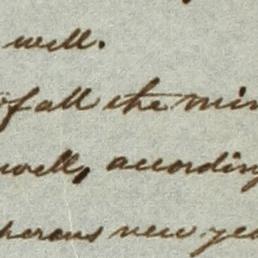 well.
of all the min
well, according
perous new yea